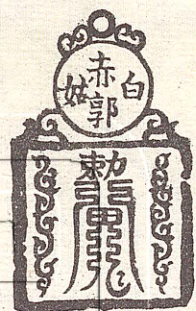 白
赤郭
姑
勅